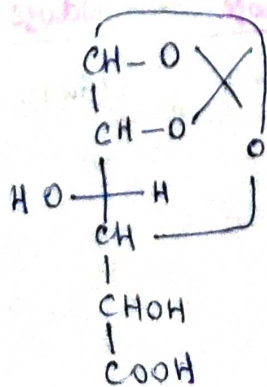 CH-O
CH-O
O
HO H
CH
CHOH
COOH